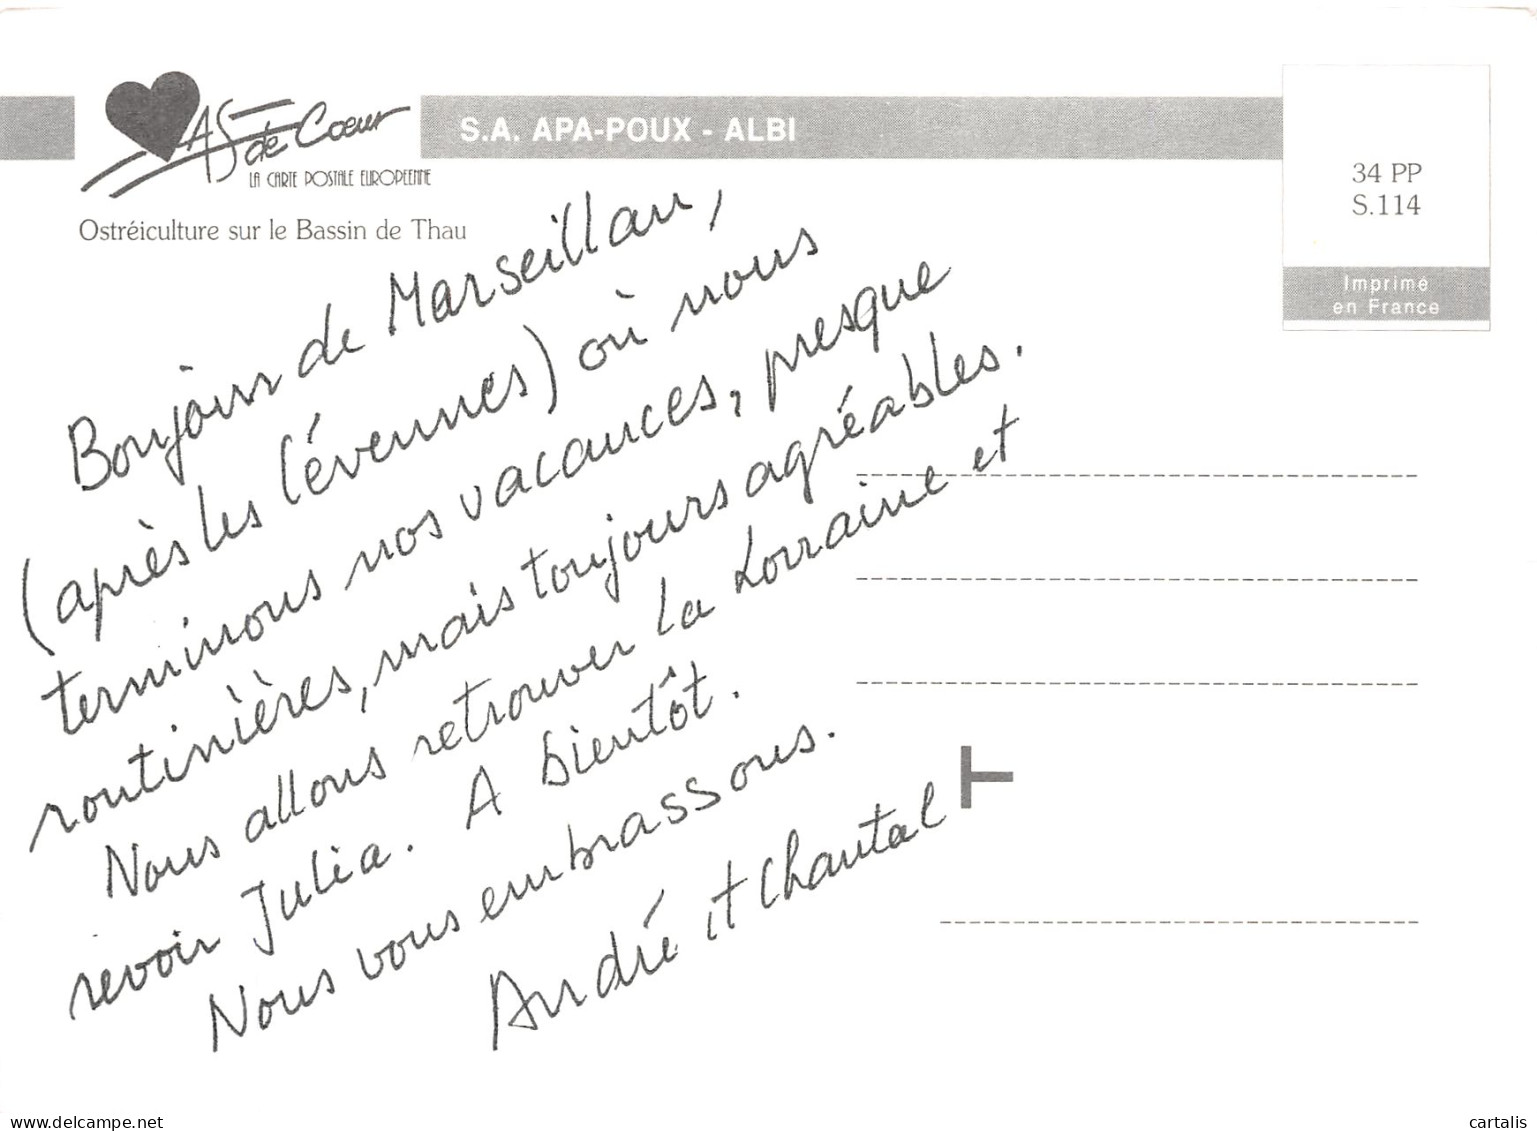 As de Coeur
LA CARTE POSTALE EUROPEENNE
S.A. APA-POUX - ALBI
34 PP
S.114
Imprimé
en France
Ostréiculture sur le Bassin de Thau
Bonjour de Marseillan,
(après les Cévennes) où nous
terminons nos vacances, presque
routinières, mais toujours agréables.
Nous allons retrouver la Lorraine et
revoir Julia. A bientôt.
Nous vous embrassons.
André et Chantal
delcampe.net
cartalis